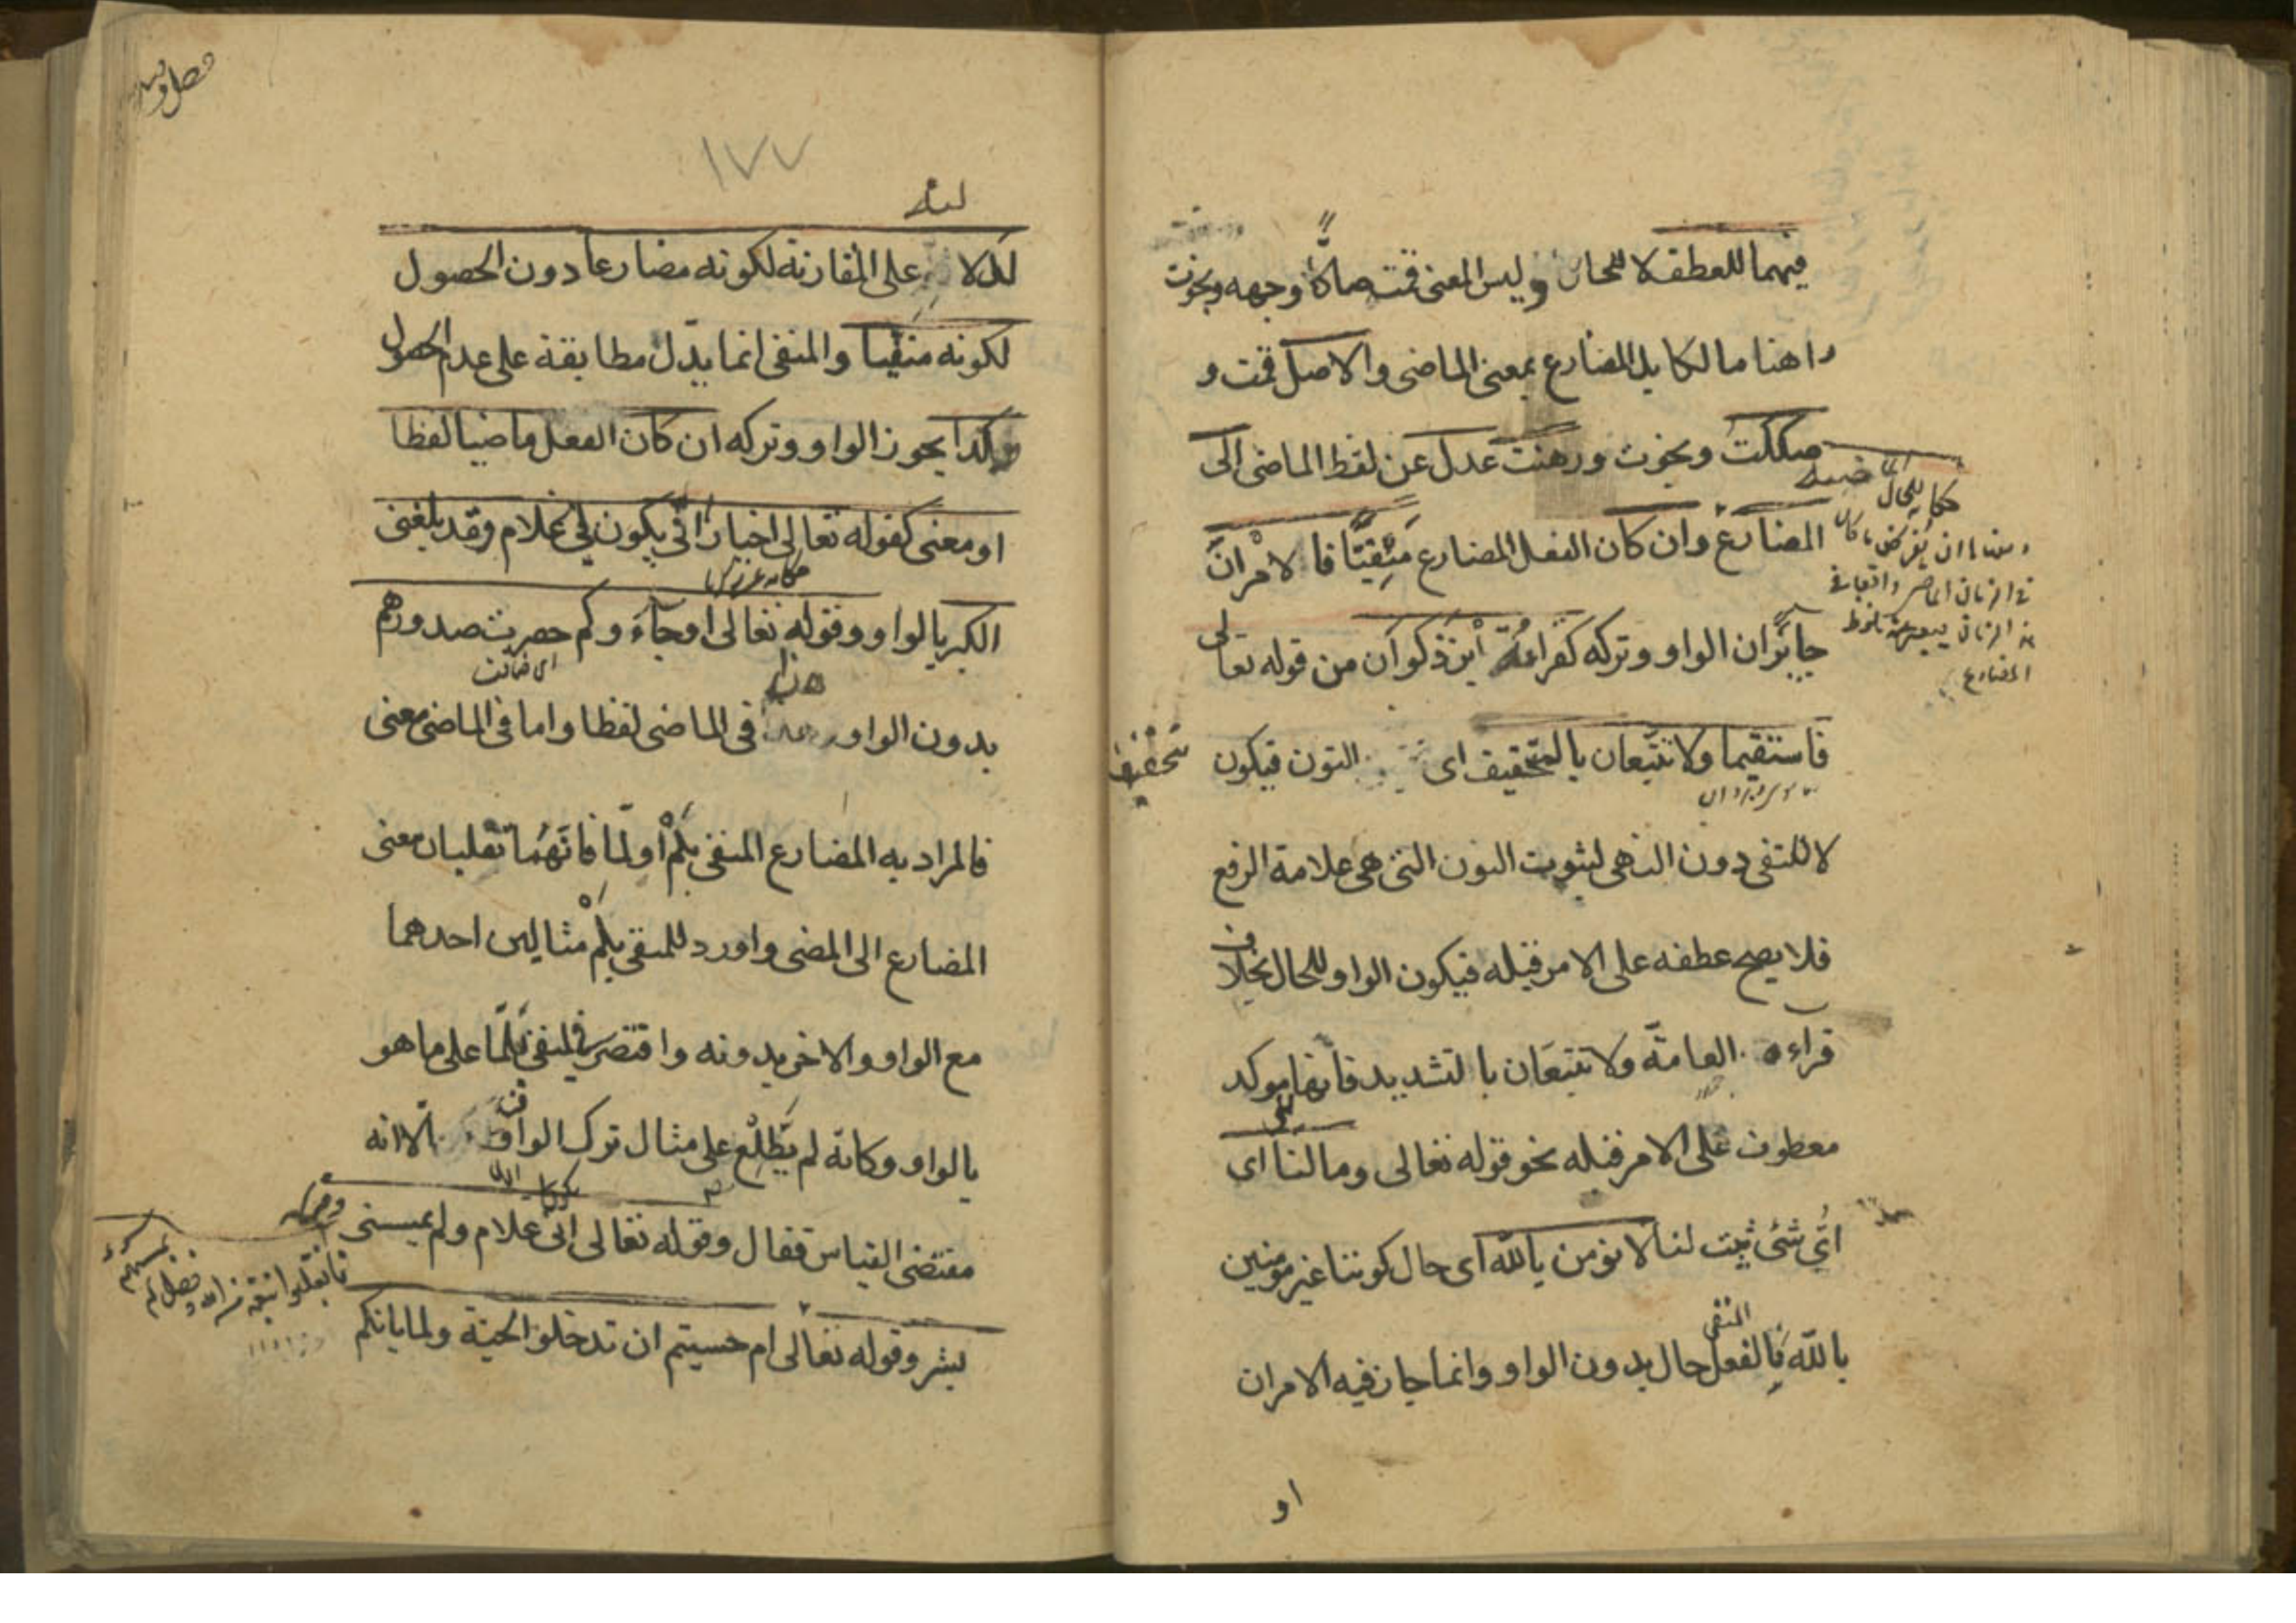 فيهما للعطف لا للحال وليس المعنى قمت صاكّاً وجهه ونجوت
راهنا مالكا بل المضارع بمعنى الماضى والاصل قمت و
صككت ونجوت ورهنت عدل عن لفظ الماضى الى
المضارع وان كان الفعل المضارع مَنْفِيّاً فالامْرانِ
جايزان الواو وتركه كقراءة ابن ذكوان من قوله تعالى
فاستقيما ولا تتبعان بالتخفيف اى النون فيكون
تخفيف
لا للنفى دون النهى لثبوت النون التى هى علامة الرفع
فلا يصح عطفه على الامر قبله فيكون الواو للحال بخلاف
قراءه العامّة ولا تتبعَان بالتشديد فانها موكد
معطوف على الامر قبله نحو قوله تعالى وما لنا اى
اىّ شئ ثبت لنا لا نؤمن بالله اى حال كوننا غير مومنين
بالله فالفعل المنفى حال بدون الواو وانما جاز فيه الامران
او
حكاية للحال الماضيه
فى الزمان الماضى واقعا فى
المضارع
١٧٧
لدلالته على المقارنة لكونه مضارعا دون الحصول
لكونه منفيا والمنفى انما يدّل مطابقة على عدم الحصول
وكذا يجوز الواو وتركه ان كان الفعل ماضيا لفظا
او معنى كقوله تعالى اخبارا انّى يكون لى غلام وقد بلغنى
الكبر بالواو وقوله تعالى او جآءَوكم حصرت صدورهم
اى ضاقت
بدون الواو هذا فى الماضى لفظا واما فى الماضى معنى
فالمراد به المضارع المنفى بلَمْ او لمّا فانّهُما تقلبان معنى
المضارع الى المضى واورد للمنفى بلَمْ مثالين احدهما
مع الواو والاخر بدونه واقتصر فى المنفى بلَمّا على ما هو
بالواو وكانّه لم يَطّلِعْ على مثال ترك الواو الّا انه
مقتضى القياس فقال وقوله تعالى انى يكون لى غلام ولم يمسسنى
بشر وقوله تعالى ام حسبتم ان تدخلوا الجنة ولما ياتكم
فانقلبوا بنعمة من الله وفضل لم
يمسسهم سوء